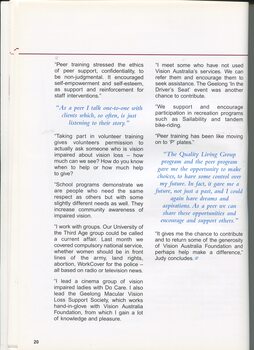 "Peer training stressed the ethics
of peer support, confidentiality, to
be non-judgmental. It encouraged
self-empowerment and self-esteem,
as support and reinforcement for
staff interventions."
"As a peer I talk one-to-one with
clients which, so often, is just
listening to their story."
"Taking part in volunteer training
gives volunteers permission to
actually ask someone who is vision
impaired about vision loss – how
much can we see? How do you know
when to help or how much help
to give?
"School programs demonstrate we
are people who need the same
respect as others but with some
slightly different needs as well. They
increase community awareness of
impaired vision.
"I work with groups. Our University of
the Third Age group could be called
a current affair. Last month we
covered compulsory national service,
whether women should be in front
lines of the army, land rights,
abortion, WorkCover for the police –
all based on radio or television news.
"I lead a cinema group of vision
impaired ladies with Do Care. I also
lead the Geelong Macular Vision
Loss Support Society, which works
hand-in-glove with Vision Australia
Foundation, from which I gain a lot
of knowledge and pleasure.
"I meet some who have not used
Vision Australia's services. We can
refer them and encourage them to
seek assistance. The Geelong 'In the
Driver's Seat' event was another
chance to contribute.
"We support and encourage
participation in recreation programs
such as Sailability and tandem
bike-riding.
"Peer training has been like moving
on to 'P' plates."
"The Quality Living Group
program and the peer program
gave me the opportunity to make
choices, to have some control over
my future. In fact, it gave me a
future, not just a past, and I could
again have dreams and
aspirations. As a peer we can
share these opportunities and
encourage and support others.
"It gives me the chance to contribute
and to return some of the generosity
of Vision Australia Foundation and
perhaps help make a difference."
Judy concludes.
20